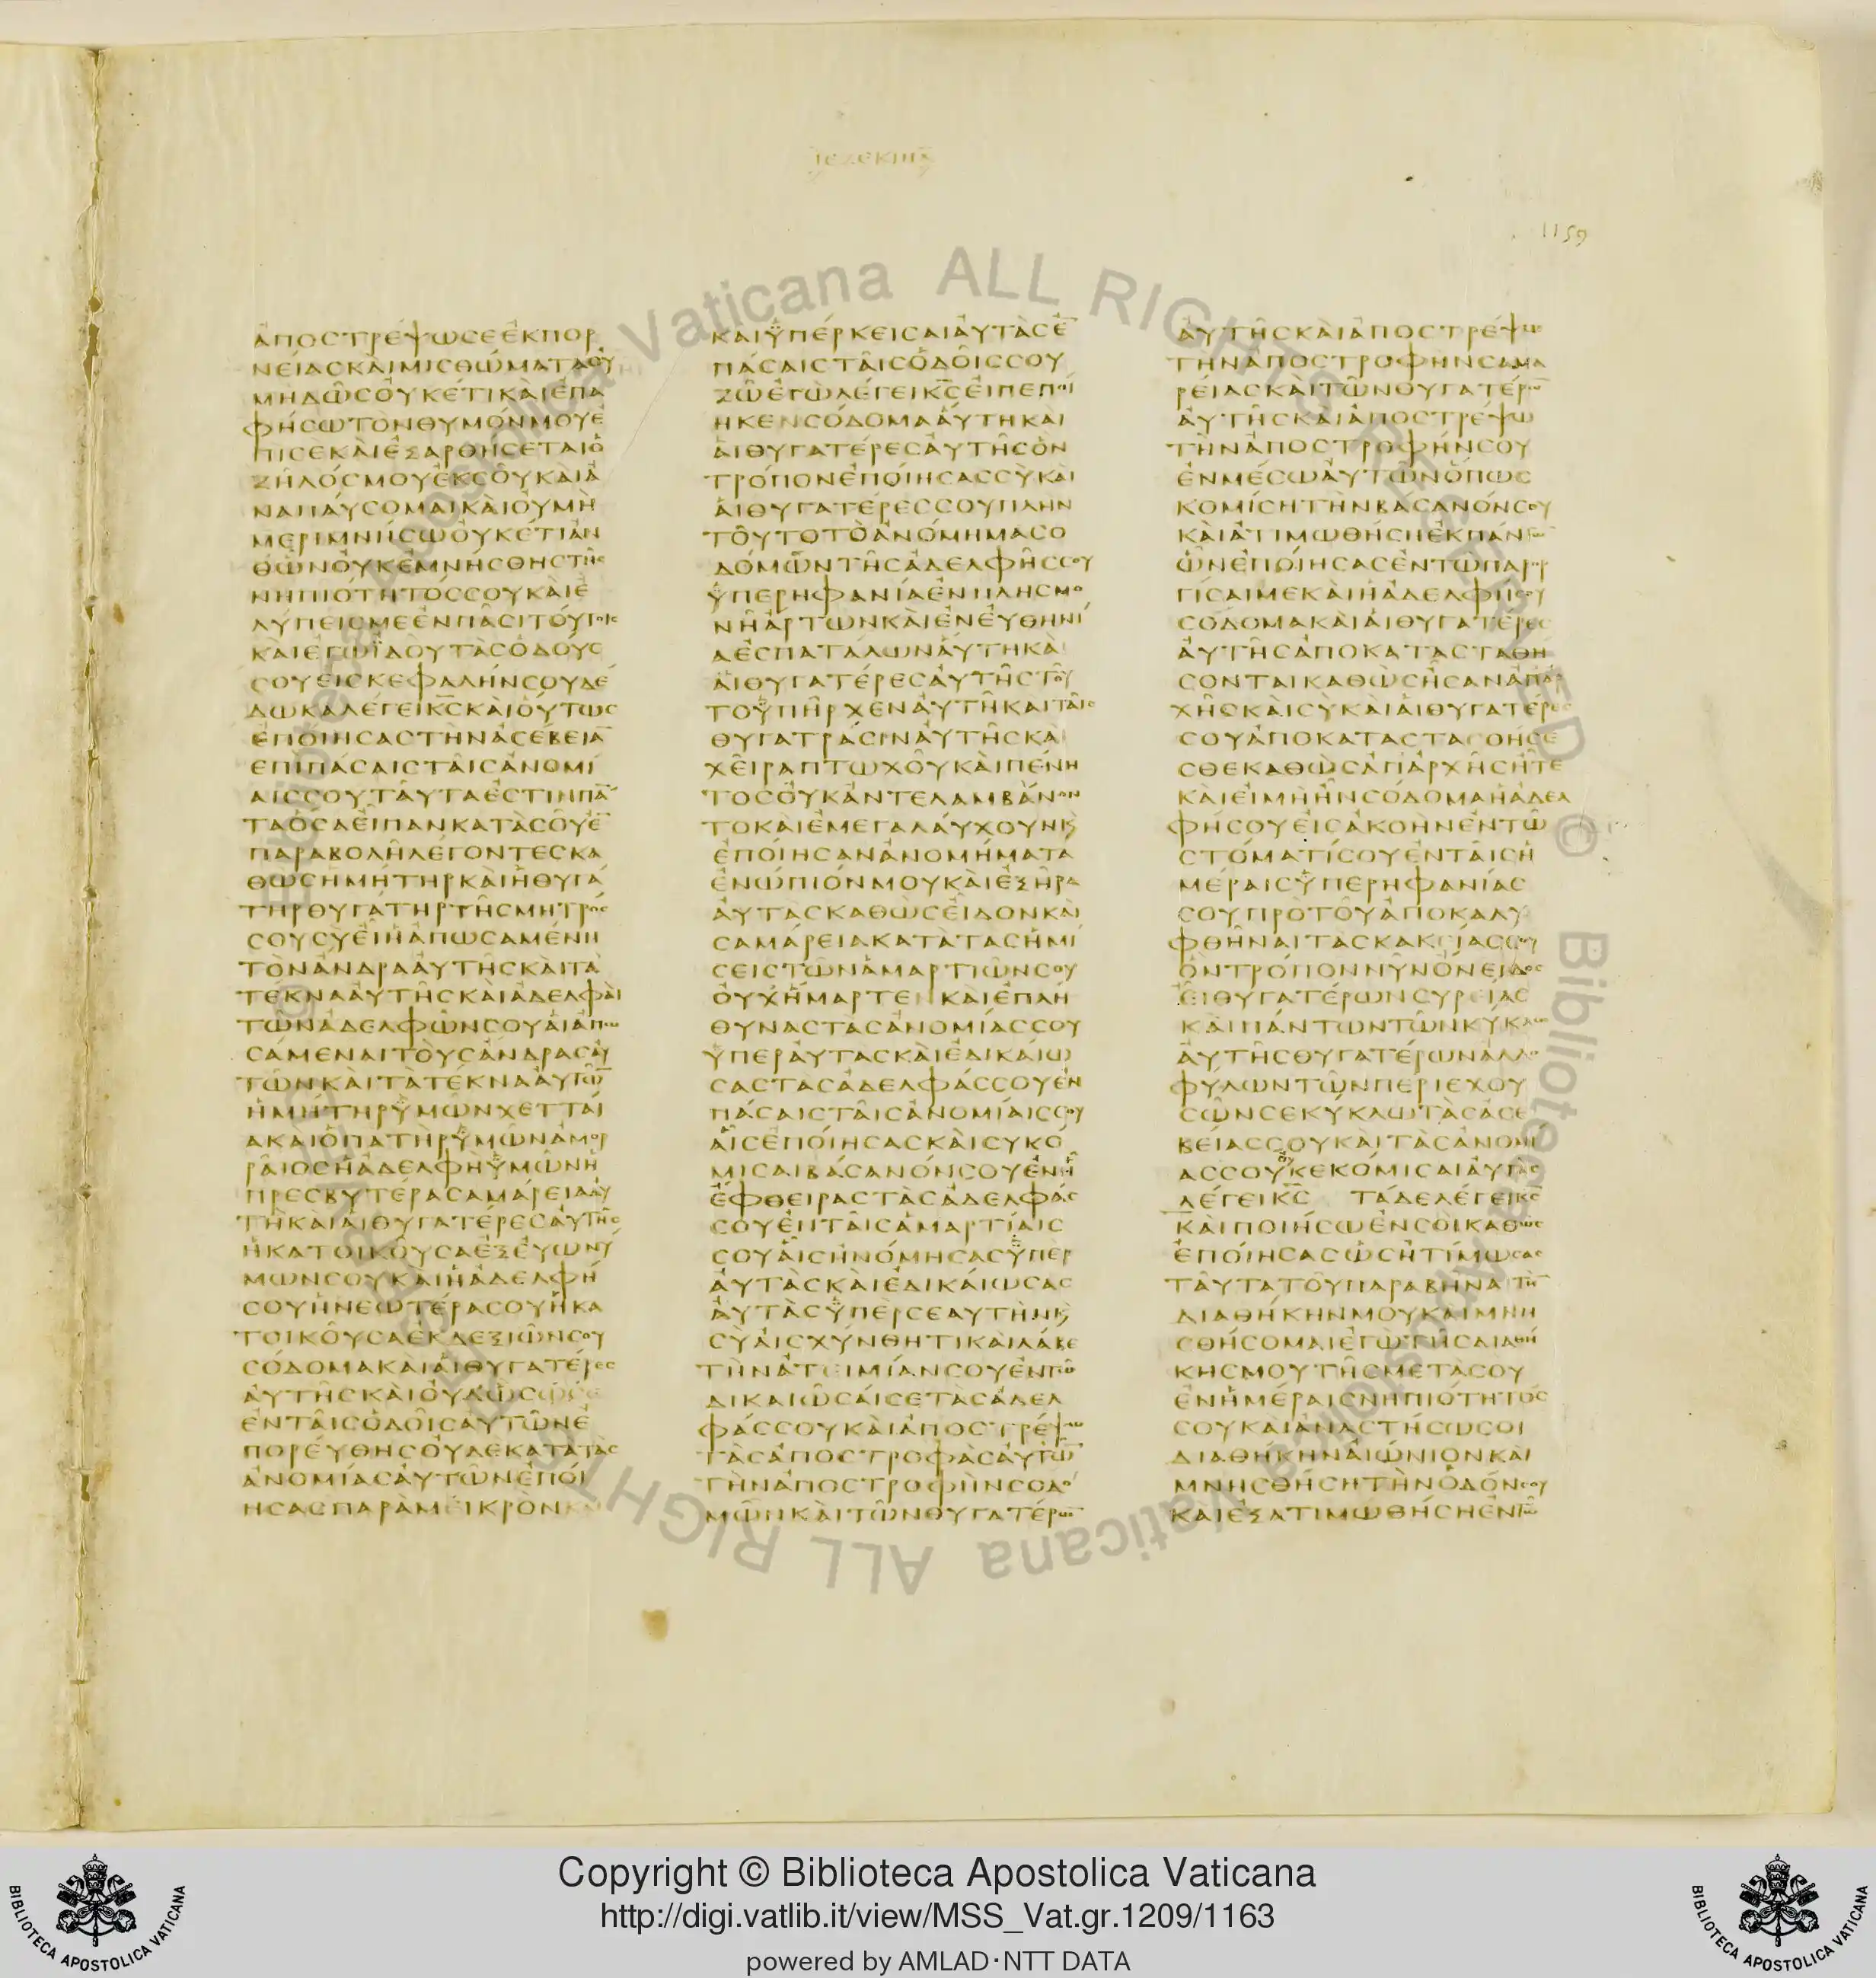 ΙΕΖΕΚΙΗΛ
1159
ἀποστρέψωσεἐκπορ
νείασκαὶμισθώματαοὐ
μὴδῶσοὐκέτικαὶἐπα
φήσωτὸνθυμόνμουἐ
πὶσεκαὶἐξαρθήσεταιὁ
ζῆλόσμουἐκσοῦκαὶἀ
ναπαύσομαικαὶοὐμὴ
μεριμνήσωοὐκέτιἀν
θὧνοὐκἐμνήσθηστῆς
νηπιότητόσσουκαὶἐ
λύπεισμεἐνπᾶσιτούτοις
καὶἐγὼϊδοὺτὰσὁδούς
σουεἰσκεφαλήνσουδέ
δωκαλέγεικ̅ς̅καὶοὕτως
ἐποίησαστὴνἀσέβεια̅
ἐπὶπάσαισταῖσἀνομί
αισσουταῦτάἐστινπά̅
ταὅσαεἶπανκατὰσοῦἐ̅
παραβολῆλέγοντεσκα
θὼσἡμήτηρκαὶἡθυγά
τηρθυγάτηρτῆσμητρός
σουσὺεἶἡἀπωσαμένη
τὸνἄνδρααὐτῆσκαὶτὰ
τέκνααὐτῆσκαὶἀδελφαὶ
τῶνἀδελφῶνσουαἱἀπω
σάμεναιτοὺσἄνδρασαὐ
τῶνκαὶτὰτέκνααὐτῶ̅
ἡμήτηρὑμῶνχετταί
ακαιὁπατὴρὑμῶνἀμορ
ραῖοσἡἀδελφὴὑμῶνἡ
πρεσβυτέρασαμάρειααὐ
τὴκαὶαἱθυγατέρεσαὐτῆς
ἡκατοικοῦσαἐξεὐωνύ
μωνσουκαὶἡἀδελφή
σουἡνεωτέρασουἡκα
τοικοῦσαἐκδεξιῶνσου
σόδομακαὶαἱθυγατέρες
αὐτῆσκαὶοὐδὧς
ἐνταῖσὁδοῖσαὐτῶνἐ
πορεύθησοὐδὲκατὰτὰς
ἀνομίασαὐτῶνἐποί
ησασπαρὰμεικρὸνκα
καιὑπέρκεισαιαὐτὰσἐ̅
πάσαισταῖσὁδοῖσσου
ζῶἐγὼλέγεικ̅ς̅εἰπεποί
ηκενσόδομααὕτηκαι
αἱθυγατέρεσαὐτῆσὃν
τρόπονἐποίησασσὺκαὶ
αἱθυγατέρεσσουπλὴν
τοῦτοτὸἀνόμημασο
δόμωντῆσἀδελφῆσσου
ὑπερηφανίαἐνπλησμο
νῆἄρτωνκαὶἐνεὐθηνί
αἐσπατάλωναὕτηκαὶ
αἱθυγατέρεσαὐτῆστοῦ
τοὑπῆρχεναὐτῆκαιταῖς
θυγατράσιναὐτῆσκαὶ
χεῖραπτωχοῦκαὶπένη
τοσοὐκἀντελαμβάνον
τοκαὶἐμεγαλαύχουνκ̀
ἐποίησανἀνομήματα
ἐνώπιόνμουκαὶἐξῆρα
αὐτὰσκαθὼσεἶδονκαὶ
σαμάρειακατὰτὰσἡμί
σειστῶνἁμαρτιῶνσου
οὐχἥμαρτενκαὶἐπλή
θυναστὰσἀνομίασσου
ὑπεραὐτὰσκαὶἐδικαίω
σαστὰσἀδελφάσσουἐν
πάσαισταῖσἀνομίαισσου
αἷσἐποίησασκαὶσὺκό
μισαιβάσανόνσουἐνἧ
ἔφθειραστὰσἀδελφάς
σουἐνταῖσἁμαρτίαις
σουαἷσἠνόμησασὑπερ
αὐτὰσκαὶἐδικαίωσας
αὐτὰσὑπὲρσεαυτὴνκ̀
σὺαἰσχύνθητικαὶλάβε
τὴνἀτειμίανσουἐντῶ
δικαιῶσαίσετὰσἀδελ
φάσσουκαὶἀποστρέψω
τὰσἀποστροφὰσαὐτῶ̅
τὴνἀποστροφὴνσοδό
μωνκαὶτῶνθυγατέρω̅
αὐτῆσκαὶἀποστρέψω
τὴνἀποστροφὴνσαμα
ρείασκαὶτῶνθυγατέρω̅
αὐτῆσκαὶἀποστρέψω
τὴνἀποστροφήνσου
ἐνμέσωαὐτῶνὅπως
κομίσητὴνβάσανόνσου
καὶἀτιμωθήσηἐκπάντω̅
ὧνἐποίησασἐντῶπαρορ
γίσαιμεκαὶἡἀδελφήσου
σόδομακαὶαἱθυγατέρες
αὐτῆσἀποκατασταθή
σονταικαθὼσἦσανἀπἀρ
χῆσκαὶσὺκαὶαἱθυγατέρες
σουἀποκατασταθήσε
σθεκαθὼσἀπἀρχῆσἦτε
καὶεἰμὴἦνσόδομαἡἀδελ
φήσουεἰσἀκοὴνἐντῶ
στόματίσουἐνταῖσἡ
μέραισὑπερηφανίας
σουπρὸτοῦἀποκαλυ
φθῆναιτὰσκακίασσου
ὃντρόποννῦνὄνειδος
εἶθυγατέρωνσυρείας
καὶπάντωντῶνκύκλω
αὐτῆσθυγατέρωνἀλλο
φύλωντῶνπεριεχου
σῶνσεκύκλωτὰσἀσε
βείασσουκαὶτὰσἀνομί
ασσουσὺκεκόμισαιαὐτὰς
λέγεικ̅ς̅ τάδελέγεικ̅ς̅
καὶποιήσωἐνσοὶκαθὼς
ἐποίησασὡσἠτίμωσας
ταῦτατοῦπαραβῆναιτὴ̅
διαθήκηνμουκαὶμνη
σθήσομαιἐγὼτῆσδιαθή
κησμουτῆσμετὰσοῦ
ἐνἡμέραισνηπιότητός
σουκαὶἀναστήσωσοι
διαθήκηναἰώνιονκαὶ
μνησθήσητὴνὁδόνσου
καὶἐξατιμωθήσηἐντῶ
Copyright © Biblioteca Apostolica Vaticana
http://digi.vatlib.it/view/MSS_Vat.gr.1209/1163
powered by AMLAD·NTT DATA
BIBLIOTECA APOSTOLICA VATICANA
BIBLIOTECA APOSTOLICA VATICANA